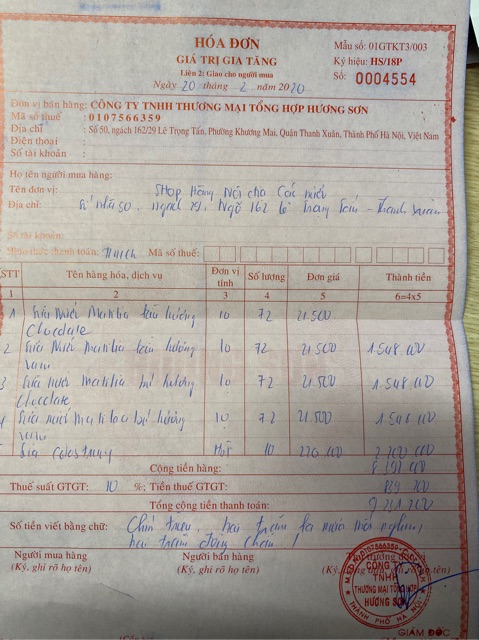 HÓA ĐƠN
GIÁ TRỊ GIA TĂNG
Liên 2: Giao cho người mua
Ngày 20 tháng 2 năm 2020
Mẫu số: 01GTKT3/003
Ký hiệu: HS/18P
Số: 0004554
Đơn vị bán hàng: CÔNG TY TNHH THƯƠNG MẠI TỔNG HỢP HƯƠNG SƠN
Mã số thuế : 0107566359
Địa chỉ : Số 50, ngách 162/29 Lê Trọng Tấn, Phường Khương Mai, Quận Thanh Xuân, Thành Phố Hà Nội, Việt Nam
Điện thoại :
Số tài khoản :
Họ tên người mua hàng:
Tên đơn vị: SHOP Hồng Nội cho Các
Địa chỉ: Số nhà 50, ngách 29, Ngõ 162 Lê Trọng Tấn - Thanh Xuân
Số tài khoản:
Hình thức thanh toán: TM/CK Mã số thuế:
STT Tên hàng hóa, dịch vụ Đơn vị tính Số lượng Đơn giá Thành tiền
1 2 3 4 5 6=4x5
1 Sữa nước hương Chocolate lo 72 21.500
2 Sữa nước hương lo 72 21.500 1.548.000
3 Sữa nước hương Chocolate lo 72 21.500 1.548.000
Sữa nước hương lo 72 21.500 1.548.000
Sữa Colostrum Hộp 10 220.000 2.200.000
Cộng tiền hàng: 8.392.000
Thuế suất GTGT: 10 %; Tiền thuế GTGT: 839.200
Tổng cộng tiền thanh toán: 9.231.200
Số tiền viết bằng chữ: Chín triệu, hai trăm ba mươi mốt nghìn,
hai trăm đồng chẵn!
Người mua hàng Người bán hàng
(Ký, ghi rõ họ tên) (Ký, ghi rõ họ tên)
M.S.D.N:0107566359
CÔNG TY
TNHH
THƯƠNG MẠI TỔNG HỢP
HƯƠNG SƠN
THÀNH PHỐ HÀ NỘI
GIÁM ĐỐC